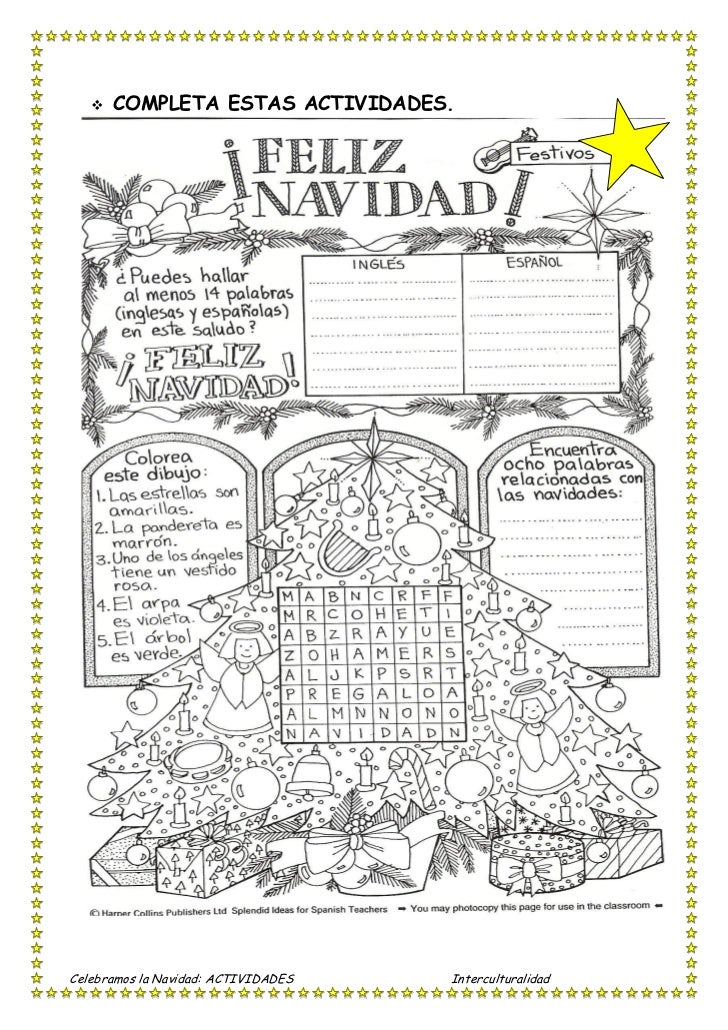 ❖ COMPLETA ESTAS ACTIVIDADES.
¡FELIZ
NAVIDAD!
Festivos
¿Puedes hallar
al menos 14 palabras
(inglesas y españolas)
en este saludo?
¡FELIZ
NAVIDAD!
INGLÉS
ESPAÑOL
Colorea
este dibujo:
1. Las estrellas son
amarillas.
2. La pandereta es
marrón.
3. Uno de los ángeles
tiene un vestido
rosa.
4. El arpa
es violeta.
5. El árbol
es verde.
M A B N C R F F
M R C O H E T I
A B Z R A Y U E
Z O H A M E R S
A L J K P S R T
P R E G A L O A
A L M N N O N O
N A V I D A D N
Encuentra
ocho palabras
relacionadas con
las navidades:
© Harper Collins Publishers Ltd Splendid Ideas for Spanish Teachers ➡ You may photocopy this page for use in the classroom ⬅
Celebramos la Navidad: ACTIVIDADES Interculturalidad